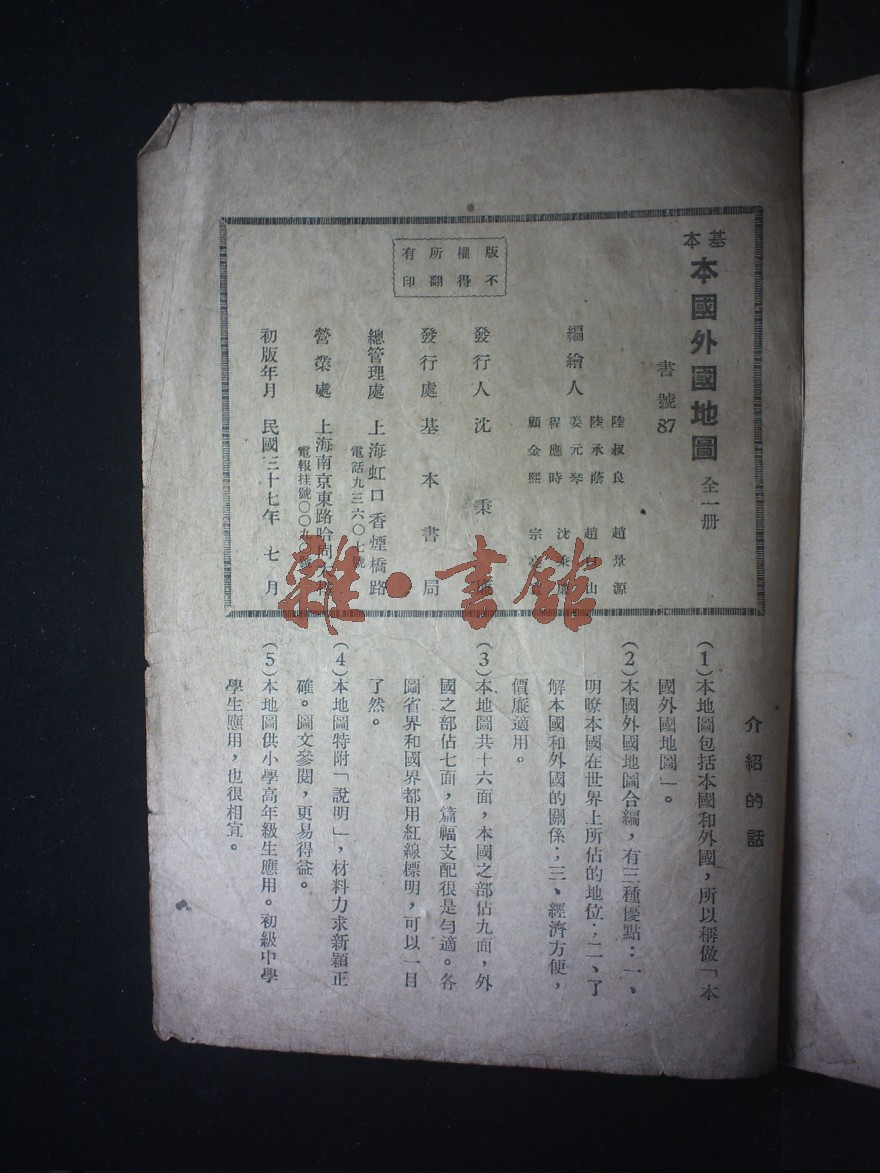 基本
本國外國地圖 全一册
書號87
編繪人
陸叔良 趙景源
陸承蔭 趙 山
姜元琴 沈
程應時 宗亮
顧金熙
發行人 沈秉
發行處 基本書局
總管理處 上海虹口香煙橋路
電話九三六〇七號
營業處 上海南京東路哈同大樓
電報挂號〇〇九
初版年月 民國三十七年七月
版權所有
不得翻印
雜·書館
介紹的話
(1)本地圖包括本國和外國,所以稱做「本
國外國地圖」。
(2)本國外國地圖合編,有三種優點:一、
明瞭本國在世界上所佔的地位;二、了
解本國和外國的關係;三、經濟方便,
價廉適用。
(3)本地圖共十六面,本國之部佔九面,外
國之部佔七面,篇幅支配很是勻適。各
圖省界和國界都用紅線標明,可以一目
了然。
(4)本地圖特附「說明」,材料力求新穎正
確。圖文參閱,更易得益。
(5)本地圖供小學高年級生應用。初級中學
學生應用,也很相宜。